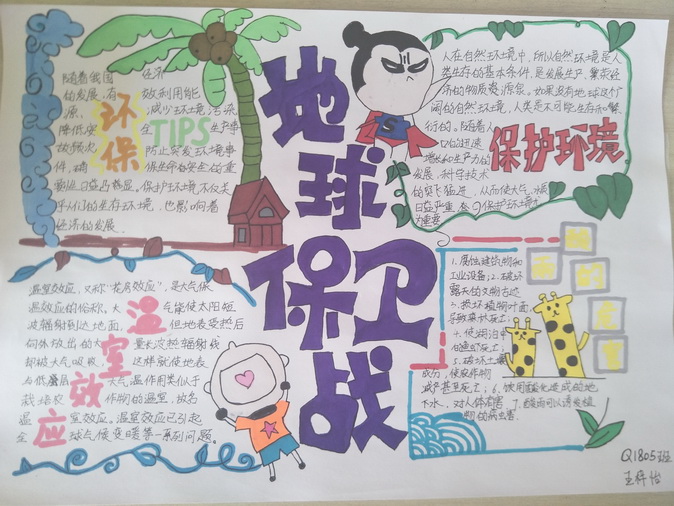 随着我国经济
的发展,有效利用能
源、减少环境污染
降低安全生产事
故频次防止突发环境事
件,确保生命安全的重
要性日益凸显。保护环境不仅关
乎人们的生存环境,也影响着
经济的发展
环保
TIPS
地球保卫战
人在自然环境中,所以自然环境是人
类生存的基本条件,是发展生产、繁荣经
济的物质资源泉。如果没有地球这个广
阔的自然环境,人类是不可能生存和繁
衍的。随着人
口的迅速
增长和生产力的
发展,科学技术
的突飞猛进,从而使大气、水质
日益严重,
保护环境
温室效应,又称"花房效应",是大气保
温效应的俗称。大气能使太阳短
波辐射到达地面,但地表受热后
向外放出的大量长波热辐射线
却被大气吸收,这样就使地表
与低层大气温作用类似于
栽培农作物的温室,故名
温室效应。温室效应已引起
全球气候变暖等一系列问题。
温室效应
1.腐蚀建筑物和
工业设备;2.破坏
露天的文物古迹
3.损坏植物叶面,
导致森林死亡;
4.使湖泊中
鱼虾死亡;
5.破坏土壤
成分,使农作物
减产甚至死亡;6.饮用酸化造成的地
下水,对人体有害
7.酸雨可以诱发植
物的病虫害
酸雨的危害
Q1805班
王梓怡